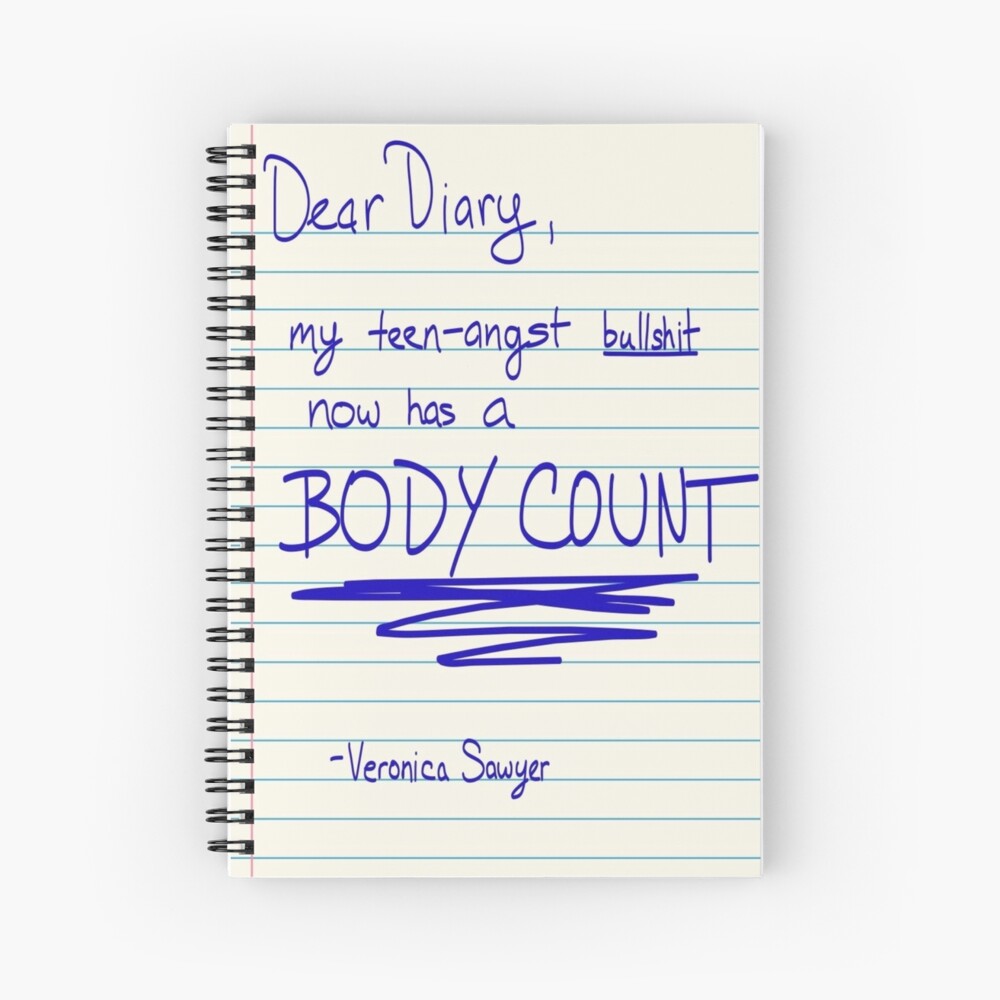 Dear Diary,
my teen-angst bullshit
now has a
BODY COUNT
-Veronica Sawyer